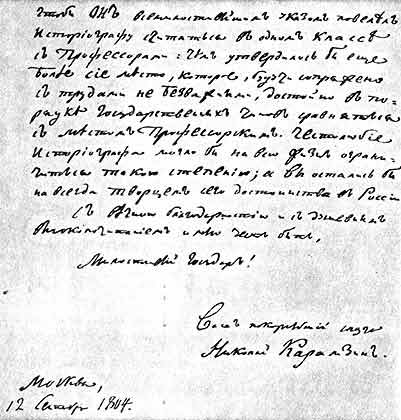 чтобъ Онъ Всемилостивѣйшимъ Указомъ повелѣлъ
Исторіографу считаться въ одномъ классѣ
съ Профессорами: чѣмъ утвердилось бы еще
болѣе сіе мѣсто, которое, будучи сопряжено
съ трудами не безважными, достойно въ по-
рядкѣ Государственныхъ чиновъ сравняться
съ мѣстомъ Профессорскимъ. Честолюбіе
Исторіографа могло бы на всю жизнь ограни-
читься такою степенію; а Вы остались бы
на всегда творцемъ сего достоинства въ Россіи
Съ вѣчною благодарностію и съ душевнымъ
высокопочитаніемъ имѣю честь быть,
Милостивый Государь!
Вашъ покорнѣйшій слуга
Николай Карамзинъ.
Москва,
12 Сентября 1804.